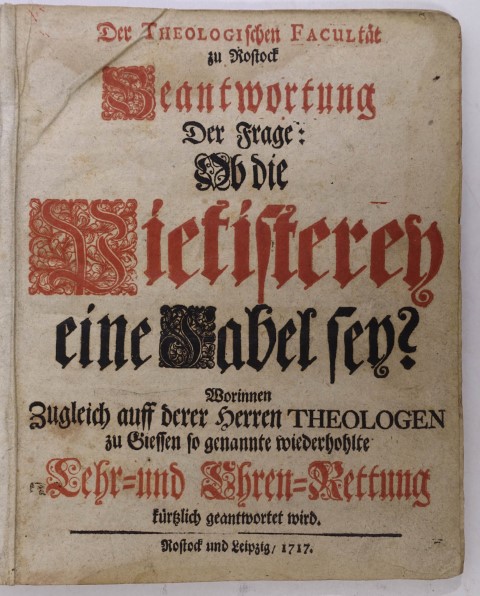 Der THEOLOGischen FACultät
zu Rostock
Beantwortung
Der Frage:
Ob die
Pietisterey
eine Fabel sey?
Worinnen
Zugleich auff derer Herren THEOLOGEN
zu Giessen so genannte wiederhohlte
Lehr-und Ehren-Rettung
kürtzlich geantwortet wird.
Rostock und Leipzig/ 1717.